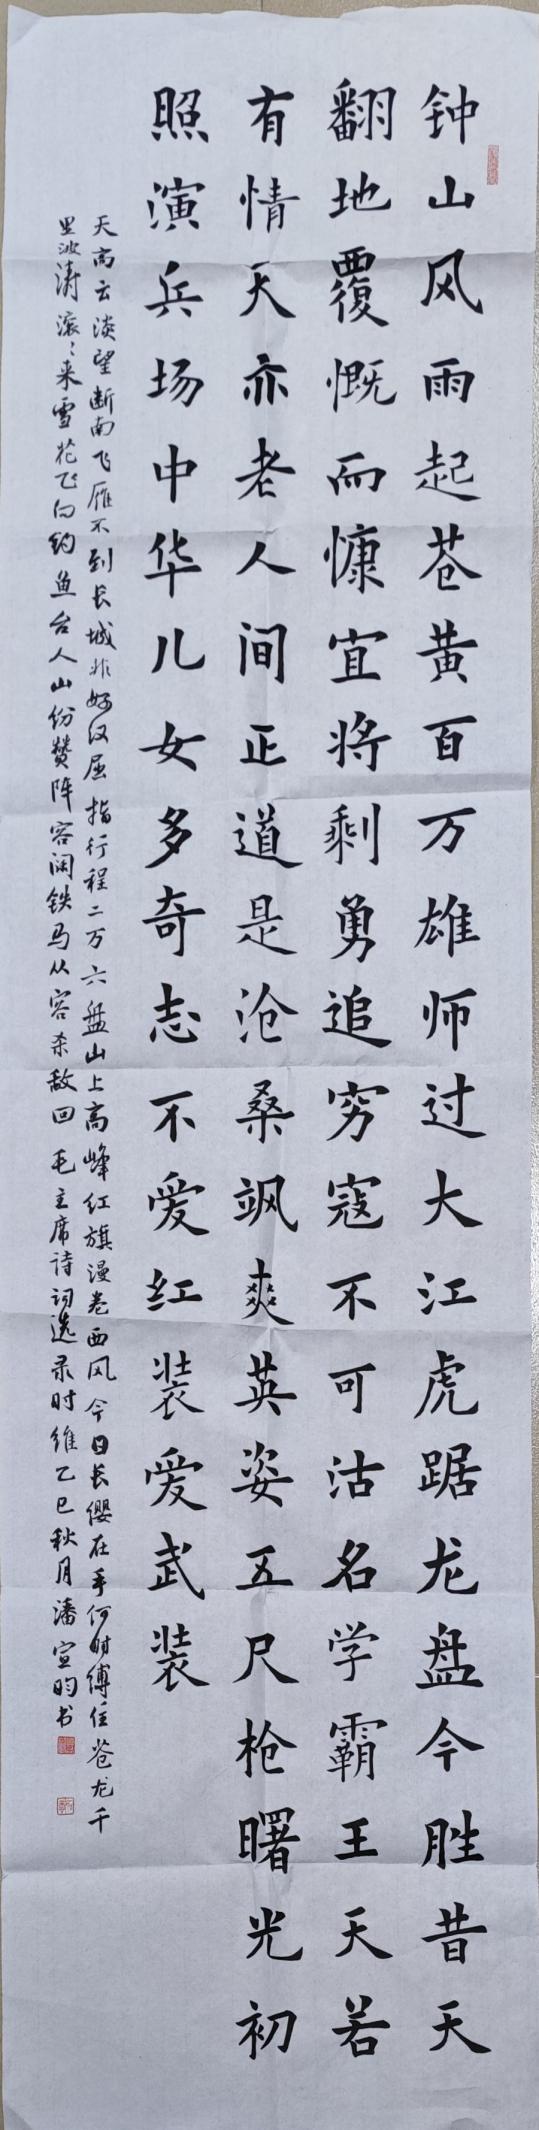 钟山风雨起苍黄百万雄师过大江虎踞龙盘今胜昔天
翻地覆慨而慷宜将剩勇追穷寇不可沽名学霸王天若
有情天亦老人间正道是沧桑飒爽英姿五尺枪曙光初
照演兵场中华儿女多奇志不爱红装爱武装
天高云淡望断南飞雁不到长城非好汉屈指行程二万六盘山上高峰红旗漫卷西风今日长缨在手何时缚住苍龙千
里波涛滚滚来雪花飞向钓鱼台人山份赞阵容阔铁马从容杀敌回毛主席诗词选录时维乙巳秋月潘宣昀书